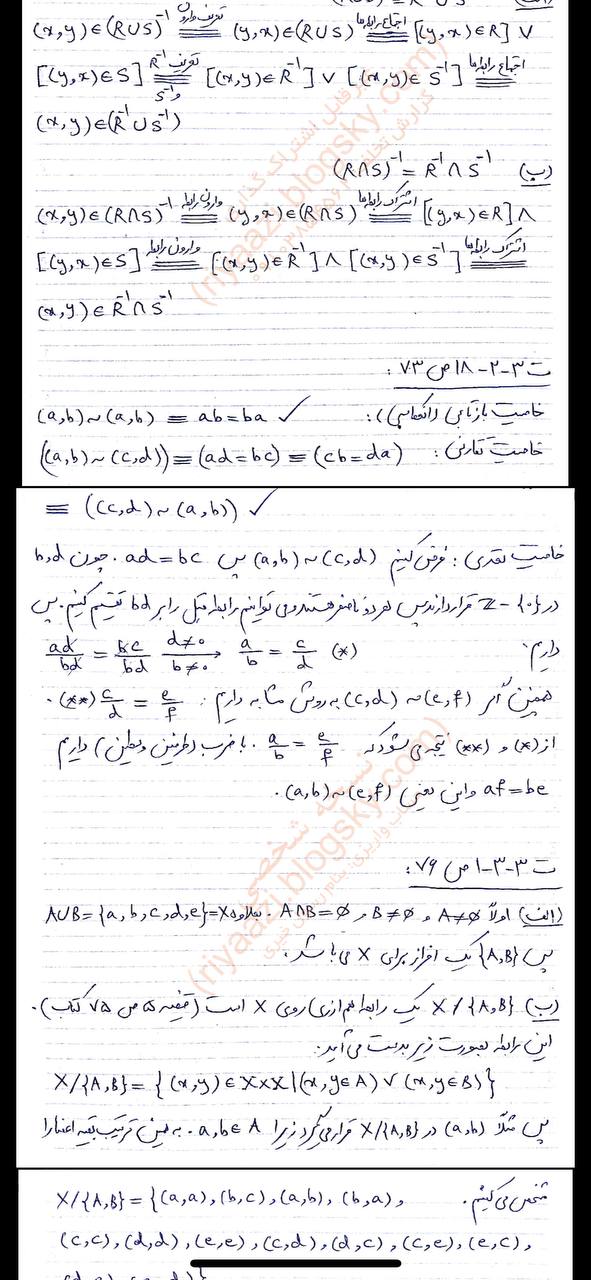 (x,y)∈(R∪S)⁻¹ تعریف وارون≡ (y,x)∈(R∪S) اجتماع رابطه‌ها≡ [(y,x)∈R] ∨
[(y,x)∈S] تعریف R⁻¹ و S⁻¹≡ [(x,y)∈R⁻¹] ∨ [(x,y)∈S⁻¹] اجتماع رابطه‌ها≡
(x,y)∈(R⁻¹∪S⁻¹)
ب) (R∩S)⁻¹ = R⁻¹∩S⁻¹
(x,y)∈(R∩S)⁻¹ وارون رابطه≡ (y,x)∈(R∩S) اشتراک رابطه‌ها≡ [(y,x)∈R]∧
[(y,x)∈S] وارون رابطه≡ [(x,y)∈R⁻¹]∧[(x,y)∈S⁻¹] اشتراک رابطه‌ها≡
(x,y)∈R⁻¹∩S⁻¹
ت ۳-۲-۱۸ ص ۷۳:
خاصیت بازتابی (انعکاسی): (a,b)~(a,b) ≡ ab=ba ✓
خاصیت تقارنی: ((a,b)~(c,d)) ≡ (ad=bc) ≡ (cb=da)
≡ ((c,d)~(a,b)) ✓
خاصیت تعدی: فرض کنیم (a,b)~(c,d) پس ad=bc. چون b,d
در Z-{0} قرار دارند پس هر دو ناصفر هستند و می توانیم رابطه قبل را بر bd تقسیم کنیم. پس
داریم: ad/bd = bc/bd d≠0 b≠0 → a/b = c/d (*)
همچنین اگر (c,d)~(e,f) به روش مشابه داریم: c/d = e/f (**).
از (*) و (**) نتیجه می شود که a/b = e/f. با ضرب (طرفین وسطین) داریم
af=be و این یعنی (a,b)~(e,f).
ت ۳-۳-۱ ص ۷۶:
الف) اولاً A≠∅ و B≠∅ و A∩B=∅. بعلاوه A∪B={a,b,c,d,e}=X
پس {A,B} یک افراز برای X می باشد.
ب) X/{A,B} یک رابطه هم ارزی روی X است (قضیه ۵ ص ۷۵ کتاب).
این رابطه بصورت زیر بدست می آید:
X/{A,B} = {(x,y)∈X×X|(x,y∈A)∨(x,y∈B)}
پس مثلاً (a,b) در X/{A,B} قرار می گیرد زیرا a,b∈A. به همین ترتیب بقیه اعضا را
مشخص می کنیم. X/{A,B} = {(a,a),(b,c),(a,b),(b,a),
(c,c),(d,d),(e,e),(c,d),(d,c),(c,e),(e,c),
(riyaazi.blogsky.com)
نسخه شخصی
(riyaazi.blogsky.com)